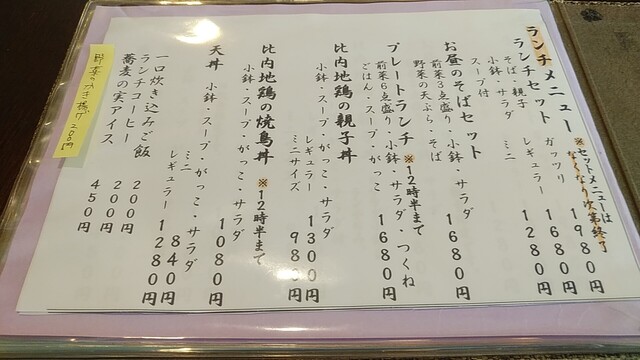 ランチメニュー
※セットメニューは
なくなり次第終了
ランチセット
ガッツリ 1980円
そば・親子
レギュラー 1680円
小鉢・サラダ
ミニ 1280円
スープ付
お昼のそばセット 1680円
前菜3点盛り・小鉢・サラダ
野菜の天ぷら・そば
プレートランチ ※12時半まで 1680円
前菜6点盛り・小鉢・サラダ・つくね
ごはん・スープ・がっこ
比内地鶏の親子丼
小鉢・スープ・がっこ・サラダ
レギュラー 1300円
ミニサイズ 980円
比内地鶏の焼鳥丼 ※12時半まで
小鉢・スープ・がっこ・サラダ 1080円
天丼
小鉢・スープ・がっこ・サラダ
レギュラー 1280円
ミニ 840円
一口炊き込みご飯 200円
ランチコーヒー 200円
蕎麦の実アイス 450円
野菜のかき揚げ 200円